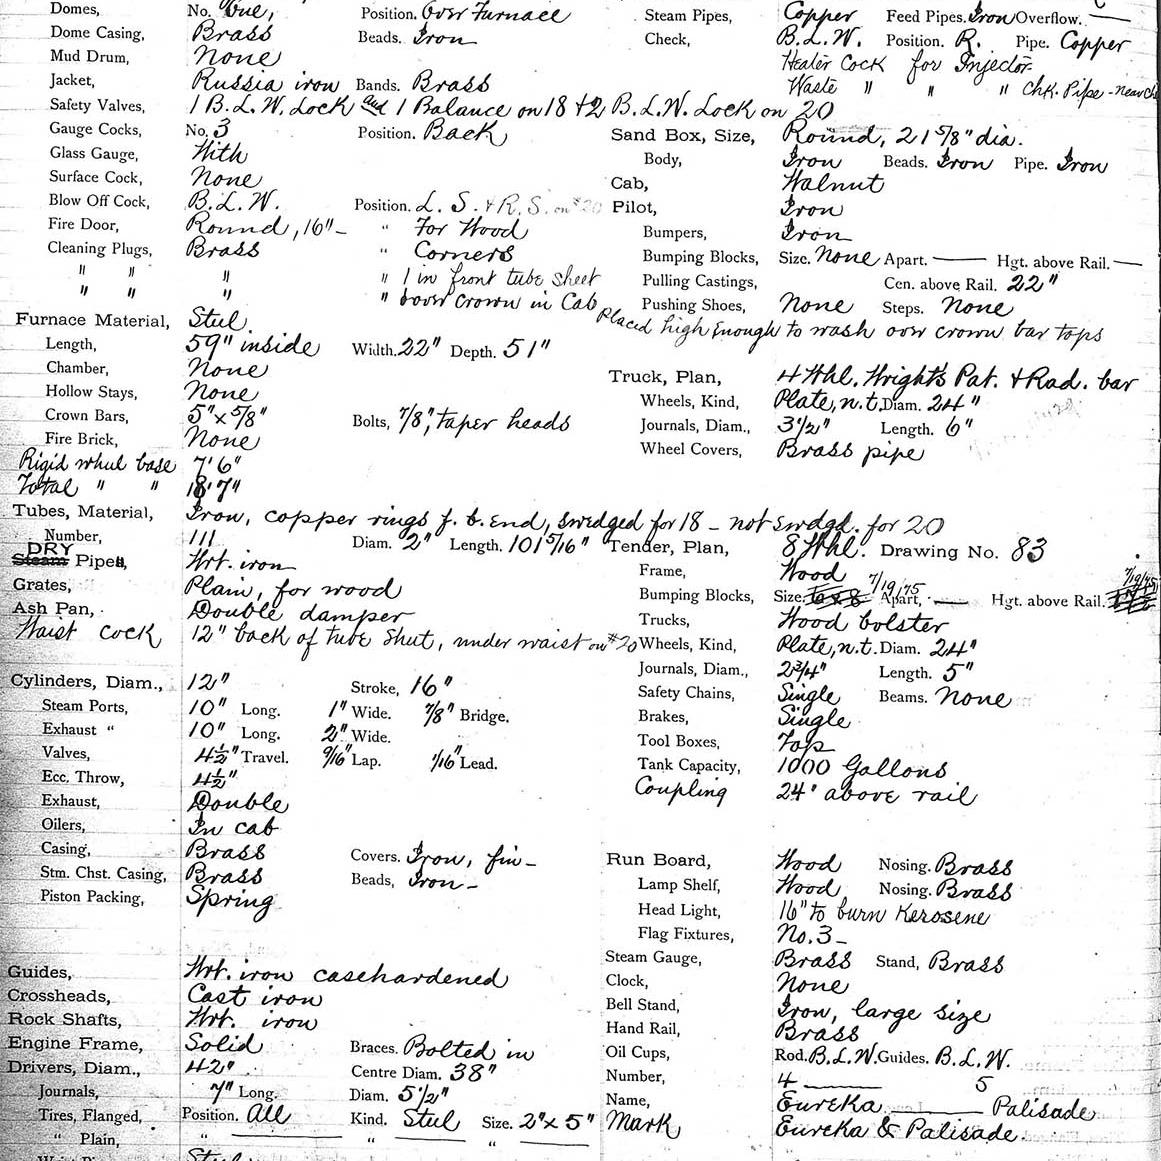 Domes, No. One, Position. Over Furnace
Dome Casing, Brass Beads. Iron
Mud Drum, None
Jacket, Russia iron Bands. Brass
Safety Valves, 1 B.L.W. Lock and 1 Balance on 18 + 2 B.L.W. Lock on 20
Gauge Cocks, No. 3 Position. Back
Glass Gauge, With
Surface Cock, None
Blow Off Cock, B.L.W. Position. L. S. + R. S. on #20
Fire Door, Round, 16" – " For Wood
Cleaning Plugs, Brass " Corners
" " " " 1 in front tube sheet
" " " " 6 over crown in Cab
Placed high enough to wash over crown bar tops
Furnace Material, Steel
Length, 59" inside Width. 22" Depth. 51"
Chamber, None
Hollow Stays, None
Crown Bars, 5" x 5/8" Bolts, 7/8", taper heads
Fire Brick, None
Rigid wheel base 7' 6"
Total " " 18' 7"
Tubes, Material, Iron, copper rings f. b. end, swedged for 18 – not swdgd. for 20
Number, 111 Diam. 2" Length. 101 5/16"
DRY
Steam Pipes, Wrt. iron
Grates, Plain, for wood
Ash Pan, Double damper
Waist cock 12" back of tube sheet, under waist on #20
Cylinders, Diam., 12" Stroke, 16"
Steam Ports, 10" Long. 1" Wide. 7/8" Bridge.
Exhaust " 10" Long. 2" Wide.
Valves, 4½" Travel. 9/16" Lap. 1/16" Lead.
Ecc. Throw, 4½"
Exhaust, Double
Oilers, In cab
Casing, Brass Covers. Iron, fin –
Stm. Chst. Casing, Brass Beads, Iron –
Piston Packing, Spring
Guides, Wrt. iron casehardened
Crossheads, Cast iron
Rock Shafts, Wrt. iron
Engine Frame, Solid Braces. Bolted in
Drivers, Diam., 42" Centre Diam. 38"
Journals, 7" Long. Diam. 5 1/2"
Tires, Flanged, Position. All Kind. Steel Size. 2" x 5"
" Plain, " — " — " —
Steel
Steam Pipes, Copper Feed Pipes. Iron Overflow. —
Check, B.L.W. Position. R. Pipe. Copper
Heater Cock for Injector
Waste " " " Chk. Pipe - near
Sand Box, Size, Round, 21 5/8" dia.
Body, Iron Beads. Iron Pipe. Iron
Cab, Walnut
Pilot, Iron
Bumpers, Iron
Bumping Blocks, Size. None Apart. — Hgt. above Rail. —
Pulling Castings, Cen. above Rail. 22"
Pushing Shoes, None Steps. None
Truck, Plan, 4 Whl. Wright's Pat. + Rad. bar
Wheels, Kind, Plate, n.t. Diam. 24"
Journals, Diam., 3 1/2" Length. 6"
Wheel Covers, Brass pipe
Tender, Plan, 8 Whl. Drawing No. 83
Frame, Wood
Bumping Blocks, Size. 6 x 8 7/19/75 Apart, — Hgt. above Rail. 7/19/75
Trucks, Wood bolster
Wheels, Kind, Plate, n.t. Diam. 24"
Journals, Diam., 2 3/4" Length. 5"
Safety Chains, Single Beams. None
Brakes, Single
Tool Boxes, Top
Tank Capacity, 1000 Gallons
Coupling 24" above rail
Run Board, Wood Nosing. Brass
Lamp Shelf, Wood Nosing. Brass
Head Light, 16" to burn Kerosene
Flag Fixtures, No. 3 –
Steam Gauge, Brass Stand, Brass
Clock, None
Bell Stand, Iron, large size
Hand Rail, Brass
Oil Cups, Rod. B.L.W. Guides. B.L.W.
Number, 4 — 5
Name, Eureka — Palisade
Mark Eureka & Palisade.